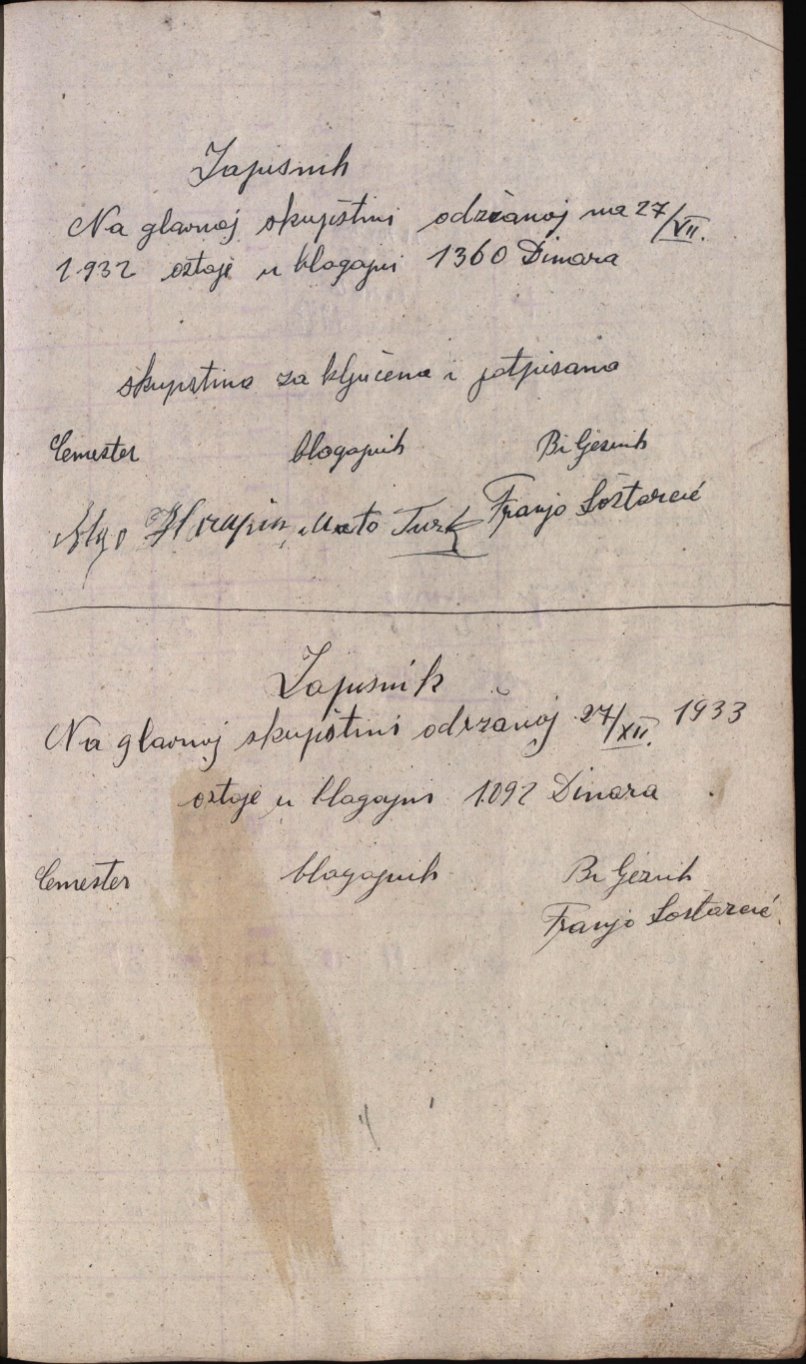 Zapisnik
Na glavnoj skupštini održanoj na 27/XII.
1932 ostaje u blagajni 1360 Dinara
skupstina za ključena i potpisana
Cemester blagajnik Bilježnik
Mato Turk Franjo Šoštarcić
Zapisnik
Na glavnoj skupštini održanoj 27/XII. 1933
ostaje u blagajni 1.092 Dinara
Cemester blagajnik Bilježnik
Franjo Sostarcić